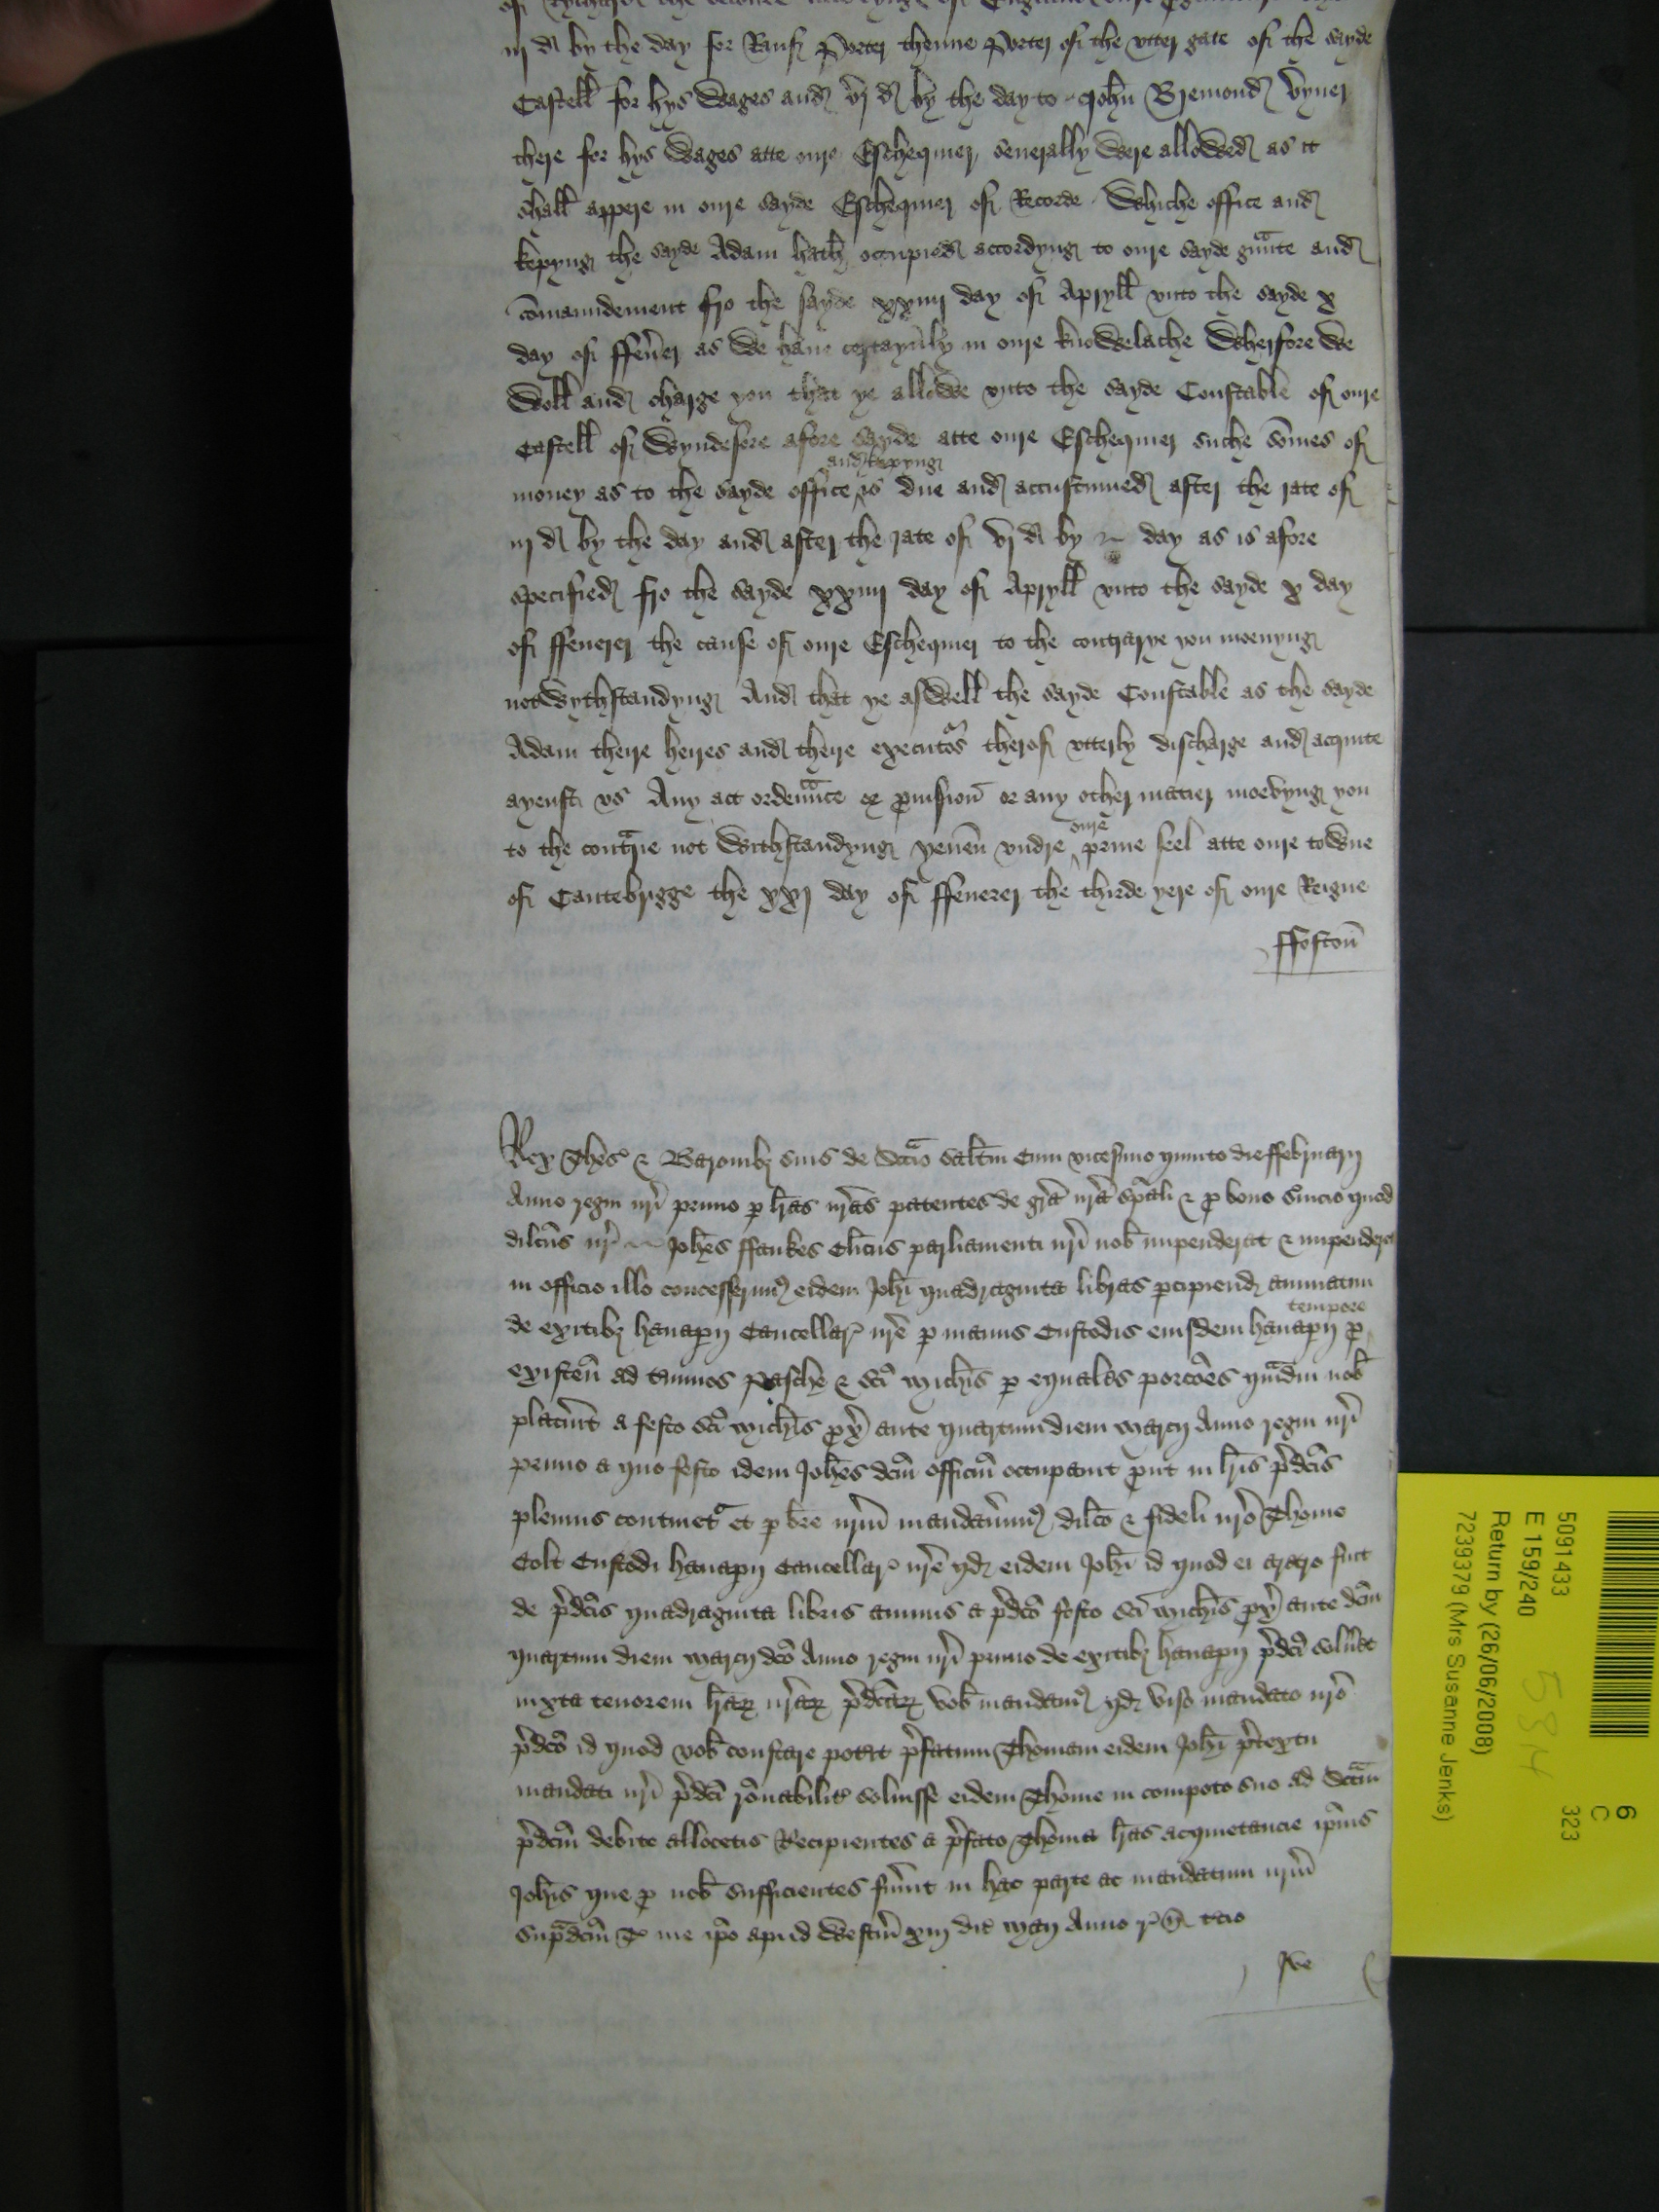 of Rycharde the seconde
iij d by the day for Rauf Porter thenne Porter of the vtter gate of the sayde
Castell for hys Wages and vj d by the day to John Bremond Vyner
there for hys Wages atte oure Eschequier seuerally Were allowed as it
shall appere in oure sayde Eschequier of Recorde Whiche office and
kepyng the sayde Adam hath occupied accordyng to oure sayde gra͠nte and
co͠maundement fro the sayde xxiiij day of Apryll vnto the sayde x
day of ffeu͠er as We haue certaynly in oure knoWelache Wherfore We
Woll and charge you that ye alloWe vnto the sayde Constable of oure
Castell of Wyndesore afore sayde atte oure Eschequier suche so͠mes of
and kepyng
money as to the sayde office is due and accustumed after the rate of
iij d by the day and after the rate of vj d by day as is afore
specified fro the sayde xxiiij day of Apryll vnto the sayde x day
of ffeuerer the cause of oure Eschequier to the contrarye you moenyng
notWythstandyng And that ye asWell the sayde Constable as the sayde
Adam theire heires and theire executors therof vtterly discharge and acquite
ayenst vs Any act ordena͠nce or p͠uision or any other matier moevyng you
oure
to the contrarie not Withstandyng yeue͠n vndre p͠riue seel atte oure toWne
of Cantebrigge the xxj day of ffeuerer the thirde yere of oure Reigne
ffoston͠
Rex Thes & Baronibz suis de sccio saltm Cum vicesimo quinto die ffebruarij
Anno regni nri primo p lras nras patentes de gra nra spali & p bono suicio quod
dilcus nr Johes ffaukes Clicus parliamenti nri nob impenderat & impenderet
in officio illo concesserim9 eidem Johi quadraginta libras pcipiend annuatim
tempore
de exitibz hanapij Cancellar nre p manus Custodis eiusdem hanapij p
existen ad tminos Pasche & sci Michis p equales porcoes qmdiu nob
placuit a festo sci Michis px ante quartum diem Marcij Anno regni nri
primo a quo festo idem Johes dcm officiu occupauit put in lris pdcis
plenius continet et p bre nrm mandauim9 dilco & fideli nro Thome
Colt Custodi hanapij Cancellar nre qd eidem Johi id quod ei aretro fuit
de pdcis quadraginta libris annuis a pdco festo sci Michis px ante dcm
quartum diem Marcij dco Anno regni nri primo de exitibz hanapij pdci soluet
iuxta tenorem lrar nrar pdcar vob mandam9 qd viso mandato nro
pdco id quod vob constare potit pfatum Thomam eidem Johi ptextu
mandati nri pdci ronabilit soluisse eidem Thome in compoto suo ad sccm
pdcm debite allocetis Recipientes a pfato Thoma lras acquietancie ipius
Johis que p nob sufficientes fuint in hac parte ac mandatum nrm
supdcm T me ipo apud Westm xiij die Maij Anno r n tcio
Ive
5091433
E 159/240
Return by (26/06/2008)
7239379 (Mrs Susanne Jenks)
6
C
323